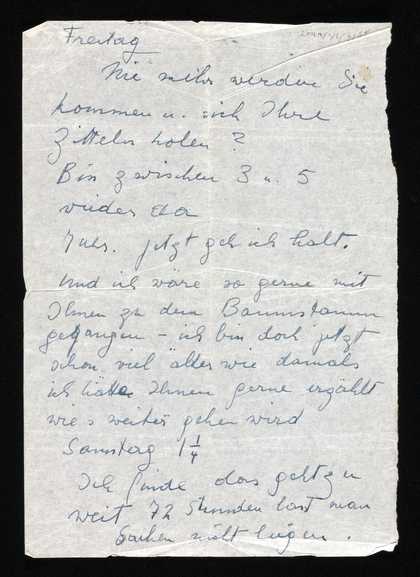 Freitag
Nie mehr werden Sie
kommen u. sich Ihre
Zitteln holen ?
Bin zwischen 3 u. 5
wieder da
jetzt geh ich halt.
Und ich wäre so gerne mit
Ihnen zu dem Baumstamm
gegangen – ich bin doch jetzt
schon viel älter wie damals
ich hätte Ihnen gerne erzählt
wie s weiter gehen wird
Samstag 1 1/4
Ich finde das geht zu
weit 72 Stunden lässt man
Sachen nicht liegen .